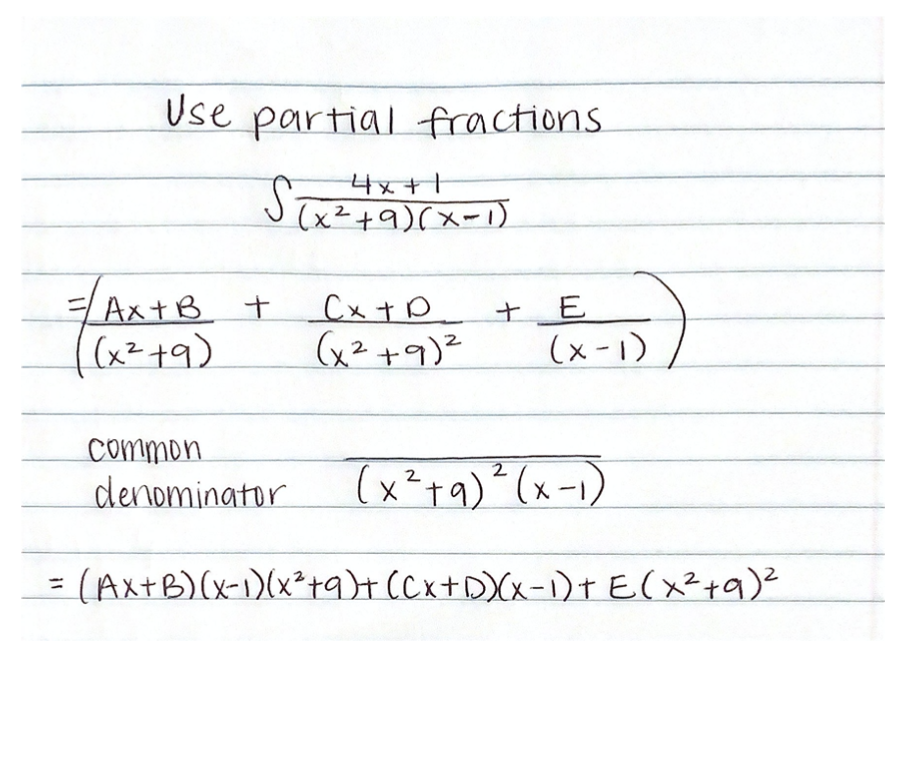 Use partial fractions
∫ (4x+1)/((x²+9)(x-1))
= ( (Ax+B)/(x²+9) + (Cx+D)/(x²+9)² + E/(x-1) )
common
denominator ——/((x²+9)²(x-1))
= (Ax+B)(x-1)(x²+9)+(Cx+D)(x-1)+E(x²+9)²